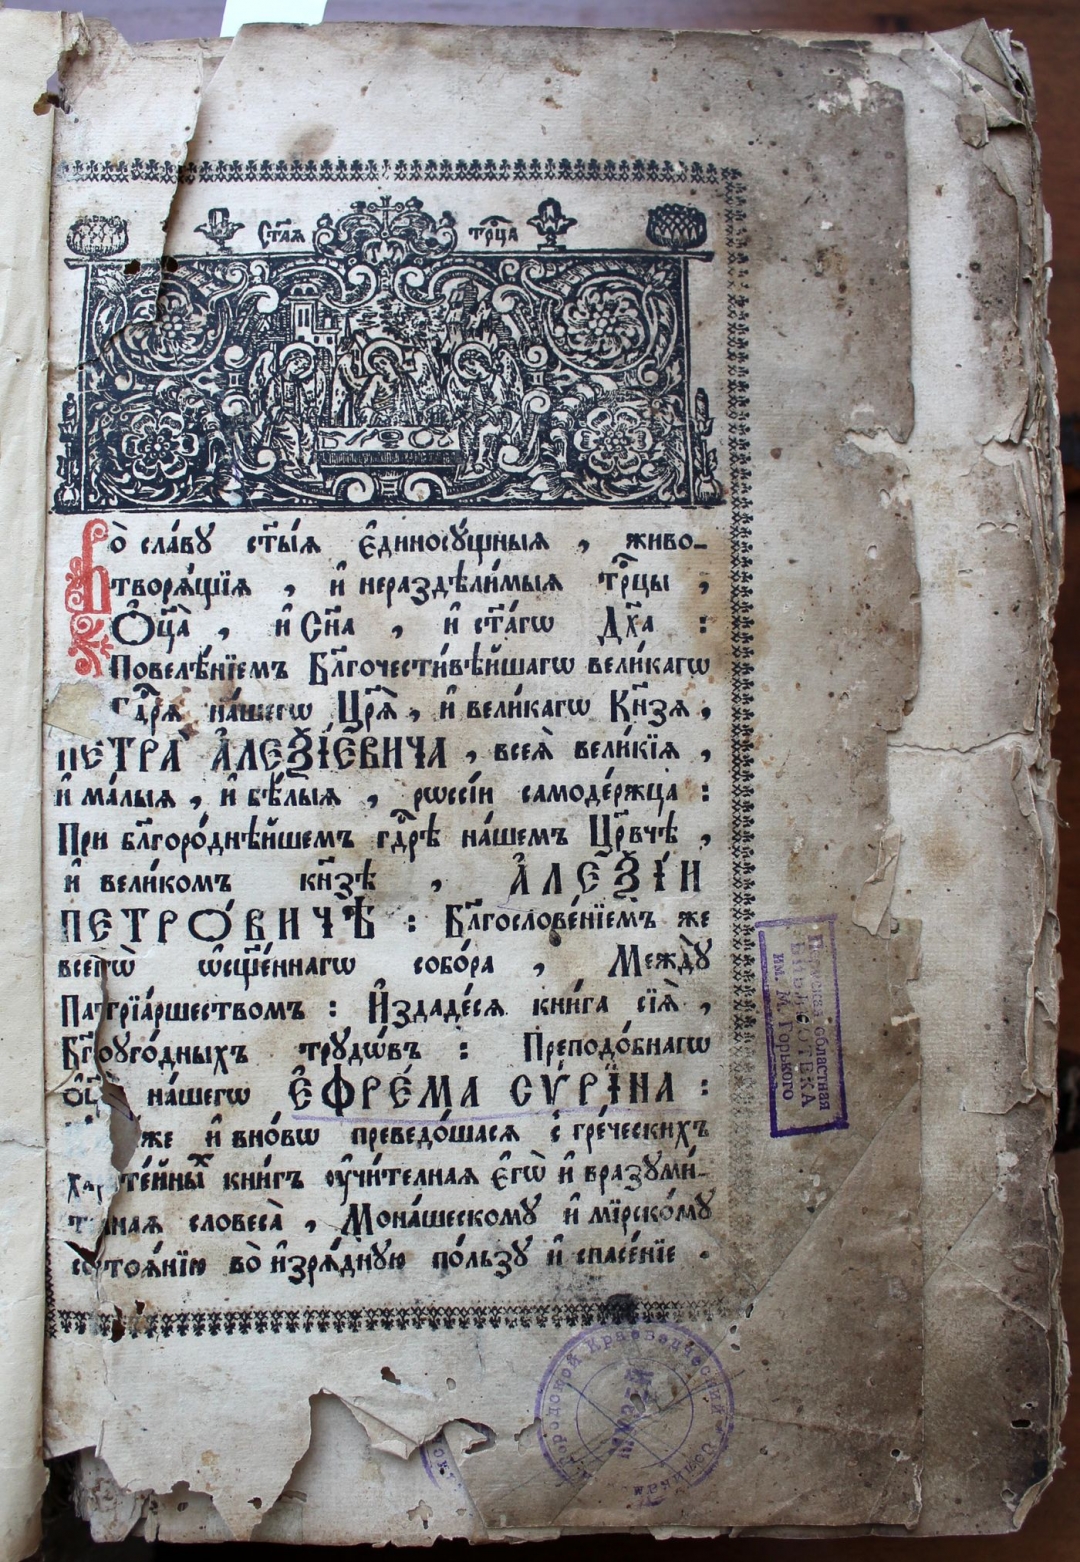 Ст҃ая трⷪ҇ца
Во̀ сла́вꙋ ст҃ы́ѧ є҆диносꙋ́щныѧ , живо-
творѧ́щїѧ , и҆ нераздѣли́мыѧ трⷪ҇цы ,
Ѻ҆ц҃а̀ , и҆ Сн҃а , и҆ ст҃а́гѡ Дх҃а :
Повелѣ́нїемъ Бл҃гочести́вѣйшагѡ вели́кагѡ
Гдⷭ҇рѧ на́шегѡ Цр҃ѧ̀ , и҆ вели́кагѡ Кн҃зѧ ,
ПЕТРА̀ А҆ЛЕѮІ́ЕВИЧА , всеѧ̀ вели́кїѧ ,
и҆ ма́лыѧ , и҆ бѣ́лыѧ , рѡссі́и самоде́ржца :
При бл҃горо́днѣйшемъ гдⷭ҇рѣ на́шемъ Црⷭ҇вчѣ ,
и҆ вели́комъ кн҃зѣ , А҆ЛЕѮІ́И
ПЕТРО́ВИЧѢ : Бл҃гослове́нїемъ же
всегѡ̀ ѡ҆сщ҃е́ннагѡ собо́ра , Междꙋ̀
Патрїа́ршествомъ : И҆здаде́сѧ кни́га сїѧ̀ ,
Бг҃оꙋго́дныхъ трꙋдѡ́въ : Преподо́бнагѡ
ѻ҆ц҃а̀ на́шегѡ Е҆ФРЕ́МА СѴ́РІНА :
же и҆ вно́вѡ преведо́шасѧ с гре́ческихъ
харате́йныⷯ кни́гъ ᲂу҆чи́телнаѧ є҆гѡ̀ и҆ вразꙋми́-
телнаѧ словеса̀ , Мона́шескомꙋ и҆ мїрско́мꙋ
состоѧ́нїю во̀ и҆зрѧ́днꙋю по́льзꙋ и҆ спасе́нїе .
областная
БИБЛИОТЕКА
им. М. Горького
Городской Краеведческий
Музей